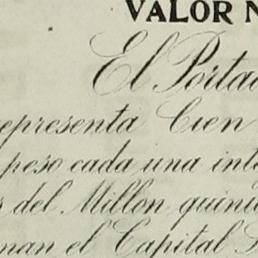 VALOR N
El Porta
epresenta Cien
peso cada una int
s del Millon quini
man el Capital S